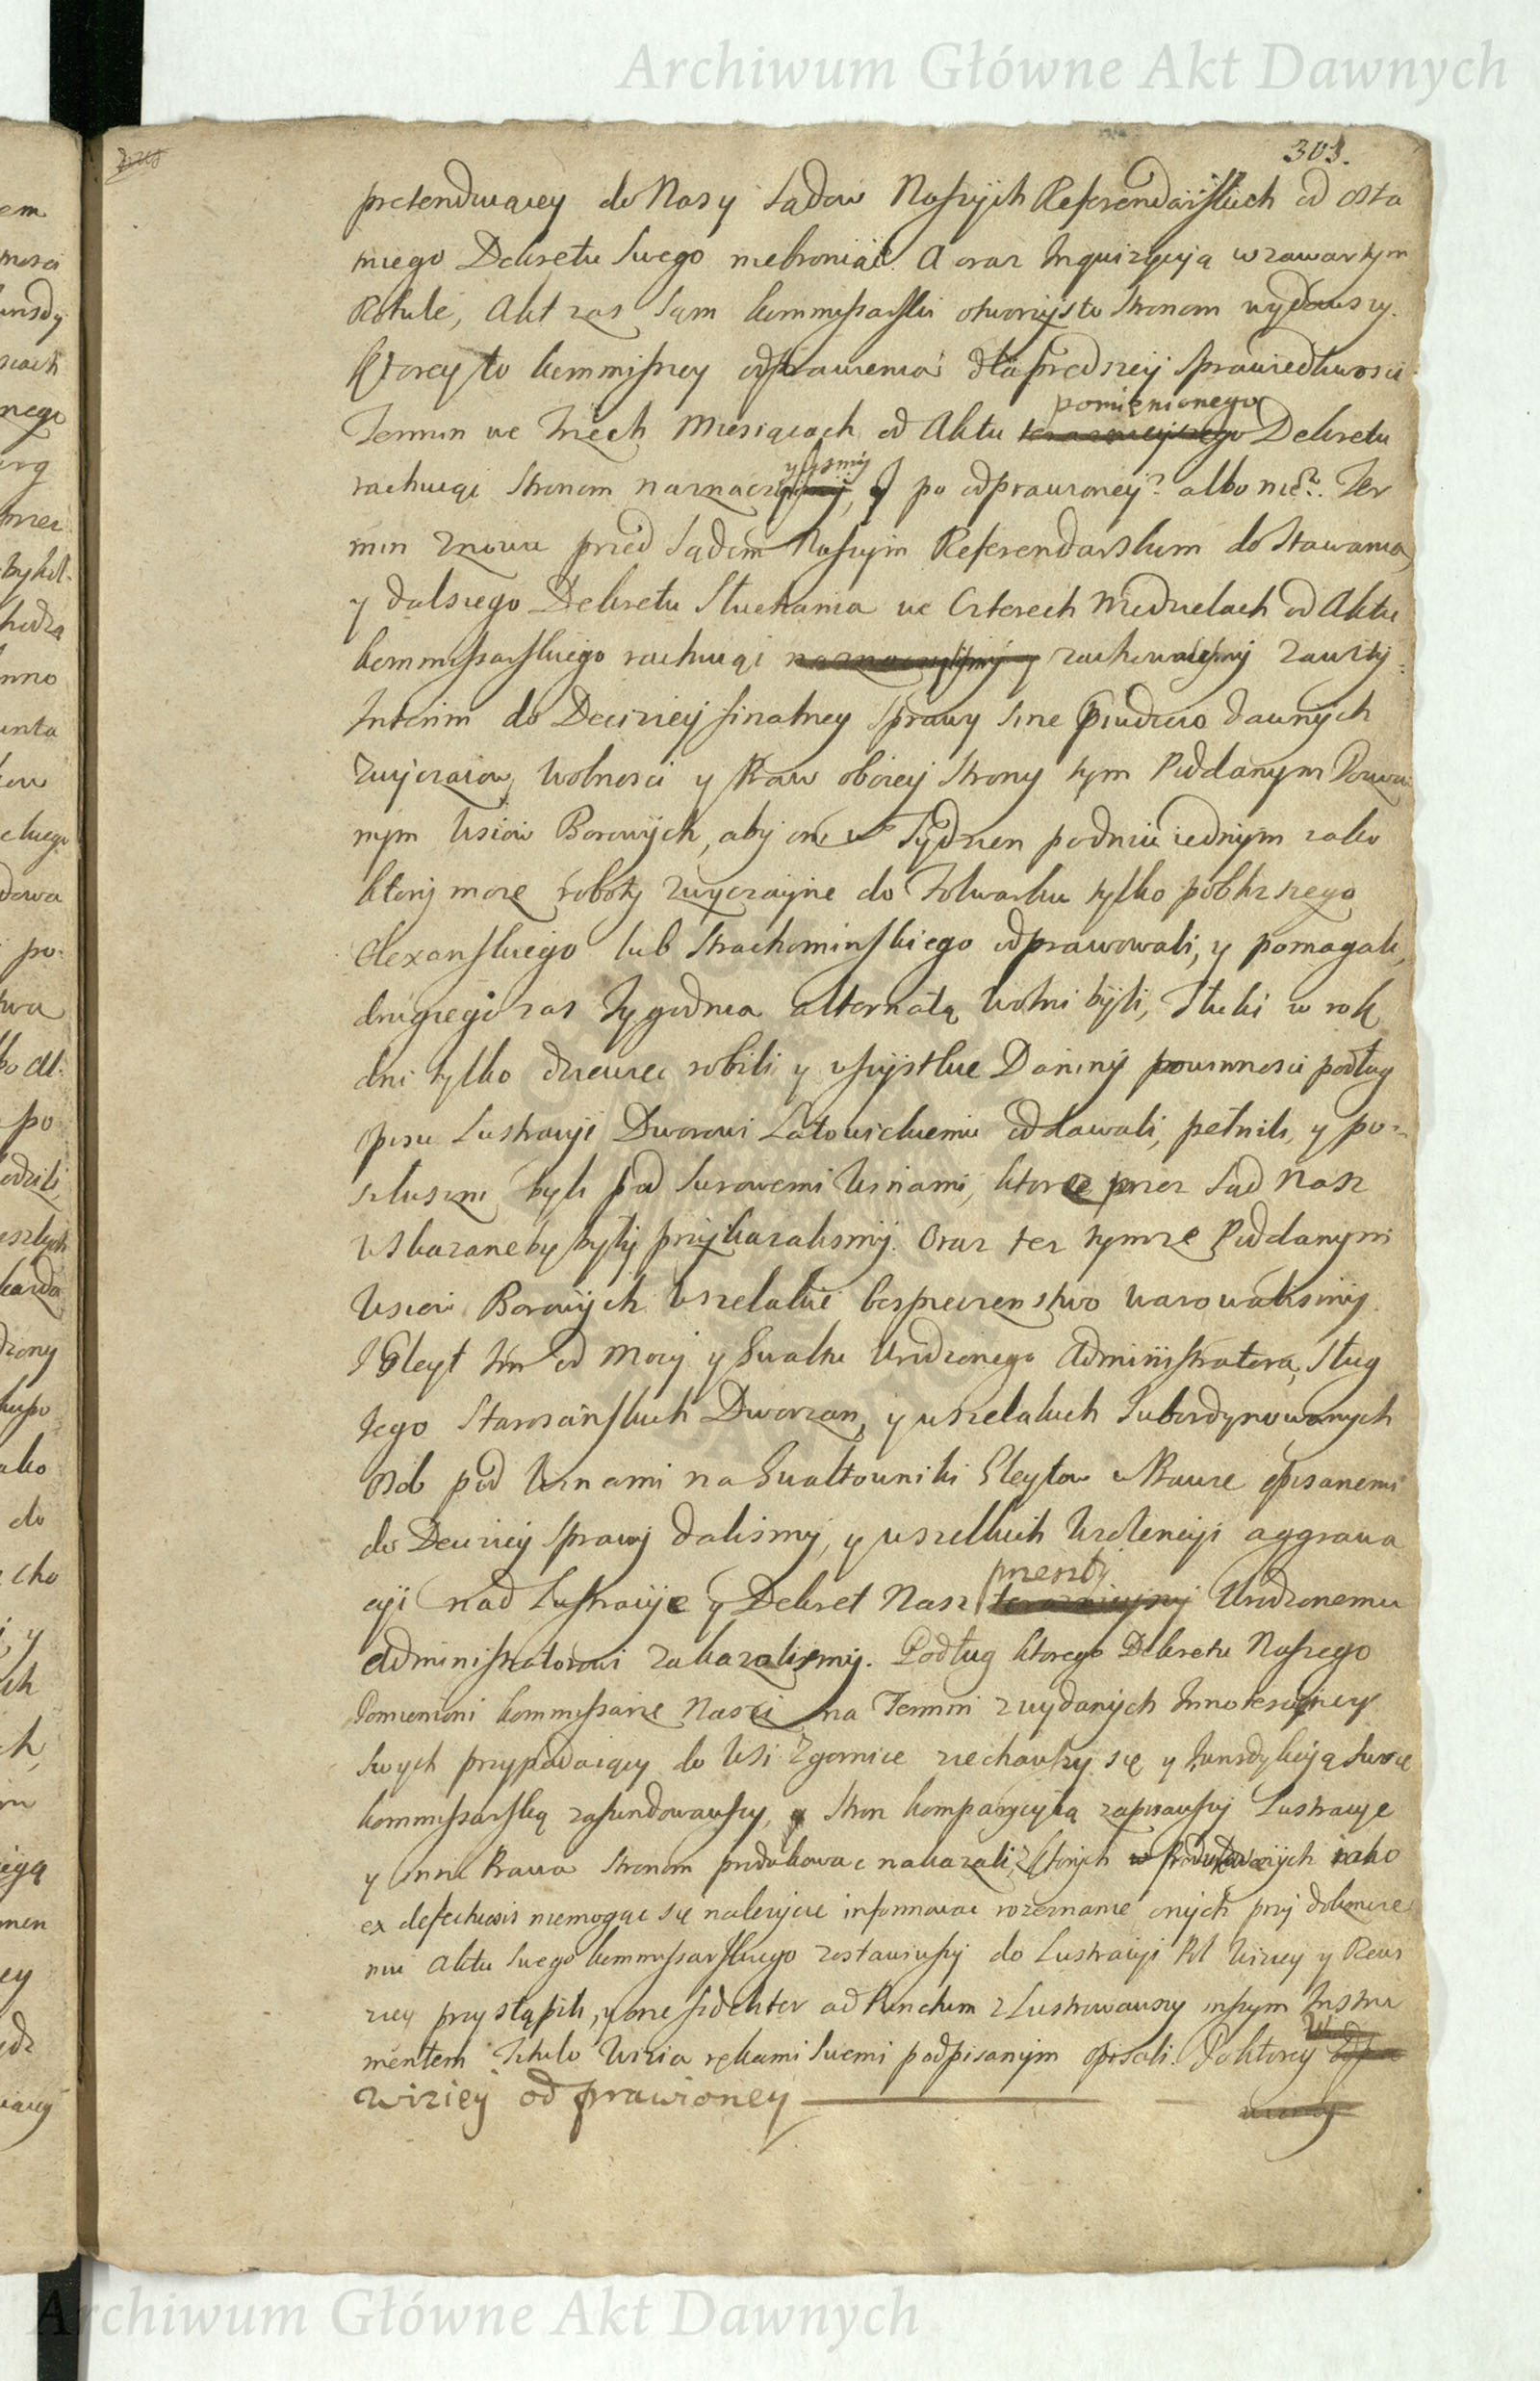 Archiwum Główne Akt Dawnych
303.
pretenduiącey do Nas y Sądow Naszych Referendarskich od osta
tniego Dekretu swego niebroniąc. A oraz Inquizycyią w zawartym
Rotule, Akt zas sąm kommissarski otworzysto stronom wydawszy.
Ktorey to kommissyey odprawienia dla prędszey sprawiedliwosci
pomienionego
Termin we trzech Miesiącach od Aktu teraznieyszego Dekretu
rachuiąc stronom naznaczylismy, y po odprawioney? albo nie?. Ter
min znowu przed Sądem Naszym Referendarskim do stawania,
y dalszego Dekretu słuchania we czterech Niedzielach od Aktu
kommissarskiego rachuiąc naznaczylismy y zachowalismy zawity.
Interim do Decizyey finalney sprawy sine praeiudicio dawnych
zwyczaiow, wolnosci y Praw oboiey strony tym Poddanym Powa
nym Wsiow Borowych, aby oni w Tydzien podniu iednym zako
ktory moze roboty zwyczayne do Folwarku tylko poblizszego
Alexanskiego lub Strachominskiego odprawowali, y pomagali,
drugiego zas tygodnia alternatą wolni byli, Tłuki w rok
dni tylko dziewięc robili y wszystkie Daniny powinnosci podług
opisu Lustracyi Dworowi Latowickiemu oddawali, pełnili, y po-
słuszni byli pod surowemi Winami, ktore przez Sąd Nasz
wskazane by były przykazalismy. Oraz tez tymze Poddanym
Wsiow Borowych wszelakie bespieczenstwo warowalismy.
I Gleyt im od Mocy y Gwałtu Urodzonego Administratora, Sług
Jego Starosciniskich Dworzan, y wszelakich Subordynowanych
osob pod Winami na Gwałtowniki Gleytow w Prawie opisanemi
do Decizyey sprawy dalismy, y wszelkich Wiolencyi aggrawa
przeszły
cyi nad Lustracyie y Dekret Nasz teraznieyszy Urodzonemu
Administratorowi zakazalismy. Podług ktorego Dekretu Naszego
Pomienieni kommissarze Nasi na Termin z wydanych Innotescencyi
swych przypadaiący do Wsi Zgornice ziechawszy się y Jurisdykcyią swoie
kommissarską zafundowawszy, y stron komparycyią zapisawszy Lustracyie
y inne Prawa stronom produkowac nakazali, z ktorych w Produkowanych iako
ex defectuosis niemogąc się nalezycie informowac rozeznanie onych przy dokoncze
niu Aktu swego kommissarskiego zostawiwszy do Lustracyi Pol Wizyey y Rewi
zyey przystąpili, y one fideliter ad Punctum z Lustrowawszy inszym Instru
mentem titulo Wizia rękami swemi podpisanym opisali. Po ktorey
wiziey odprawioney
Archiwum Główne Akt Dawnych